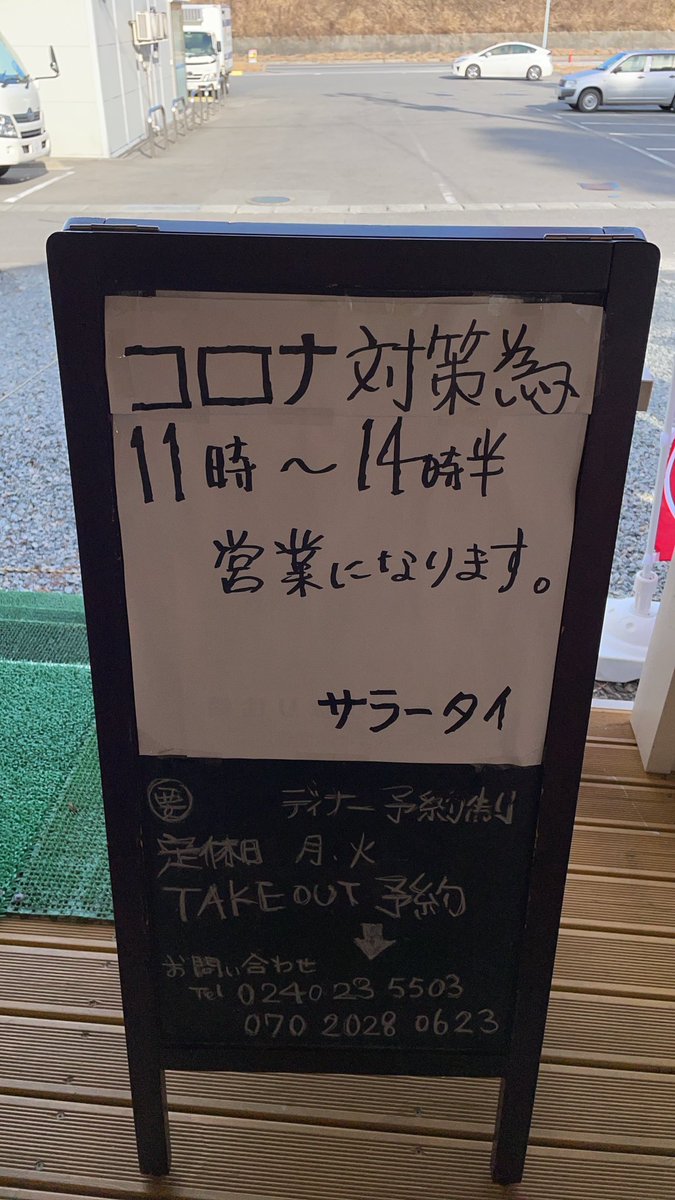 コロナ対策為
11時～14時半
営業になります。
サラータイ
要 ディナー予約制
定休日 月、火
TAKEOUT 予約
お問い合わせ
Tel 0240 23 5503
070 2028 0623